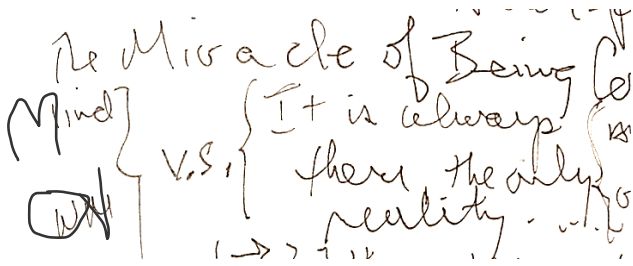 The Miracle of Being
Mind
v.s. { It is always
there the only
reality.